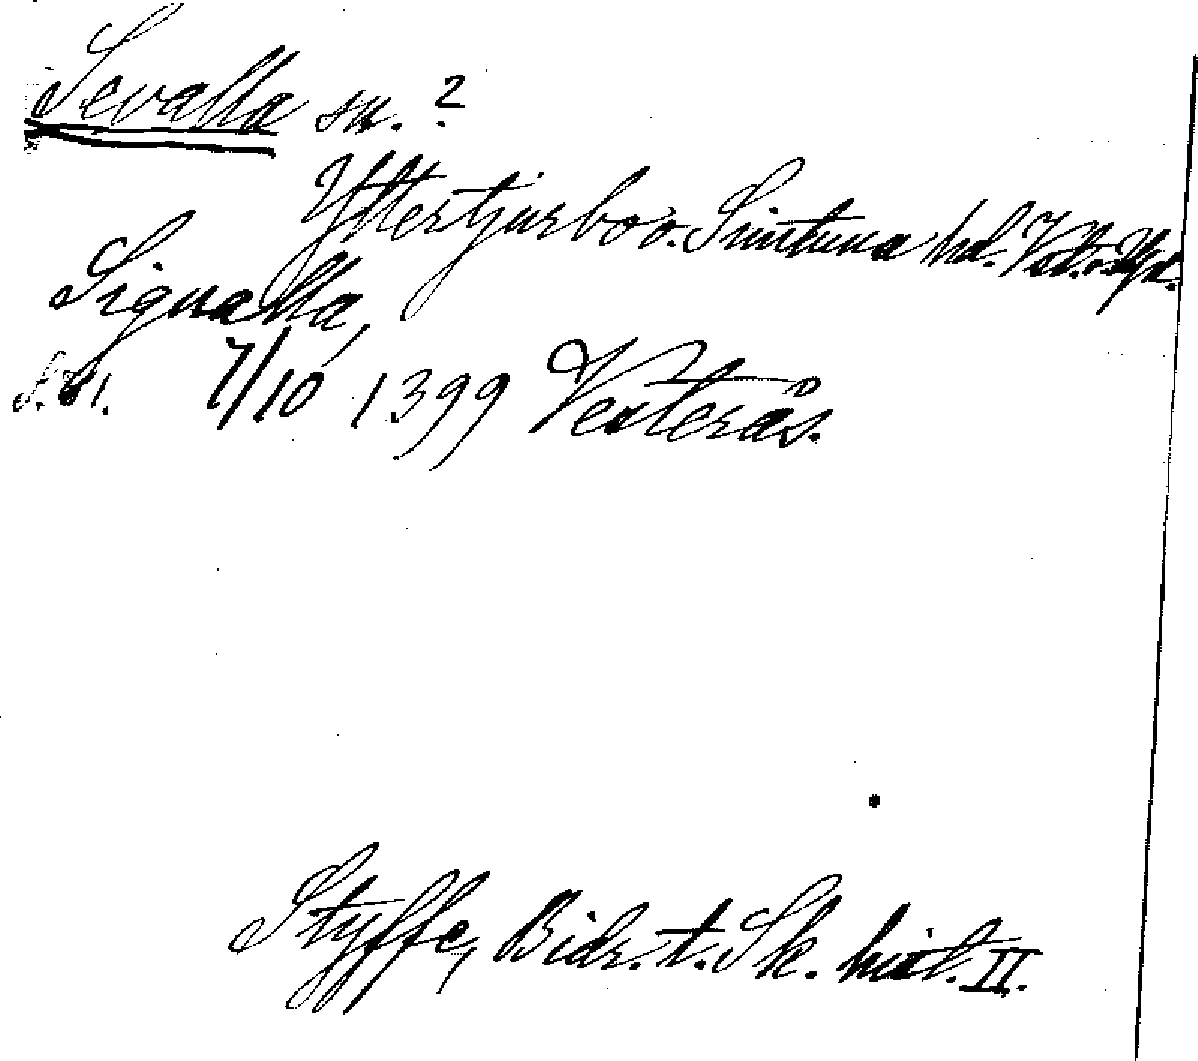 Sevalla sn. ?
Yttertjurbo o. Simtuna hd. Vstm. o. Upl.
Signalla,
s. 61. 7/10 1399 Vesterås.
Styffe, Bidr. t. Sk. hist. II.